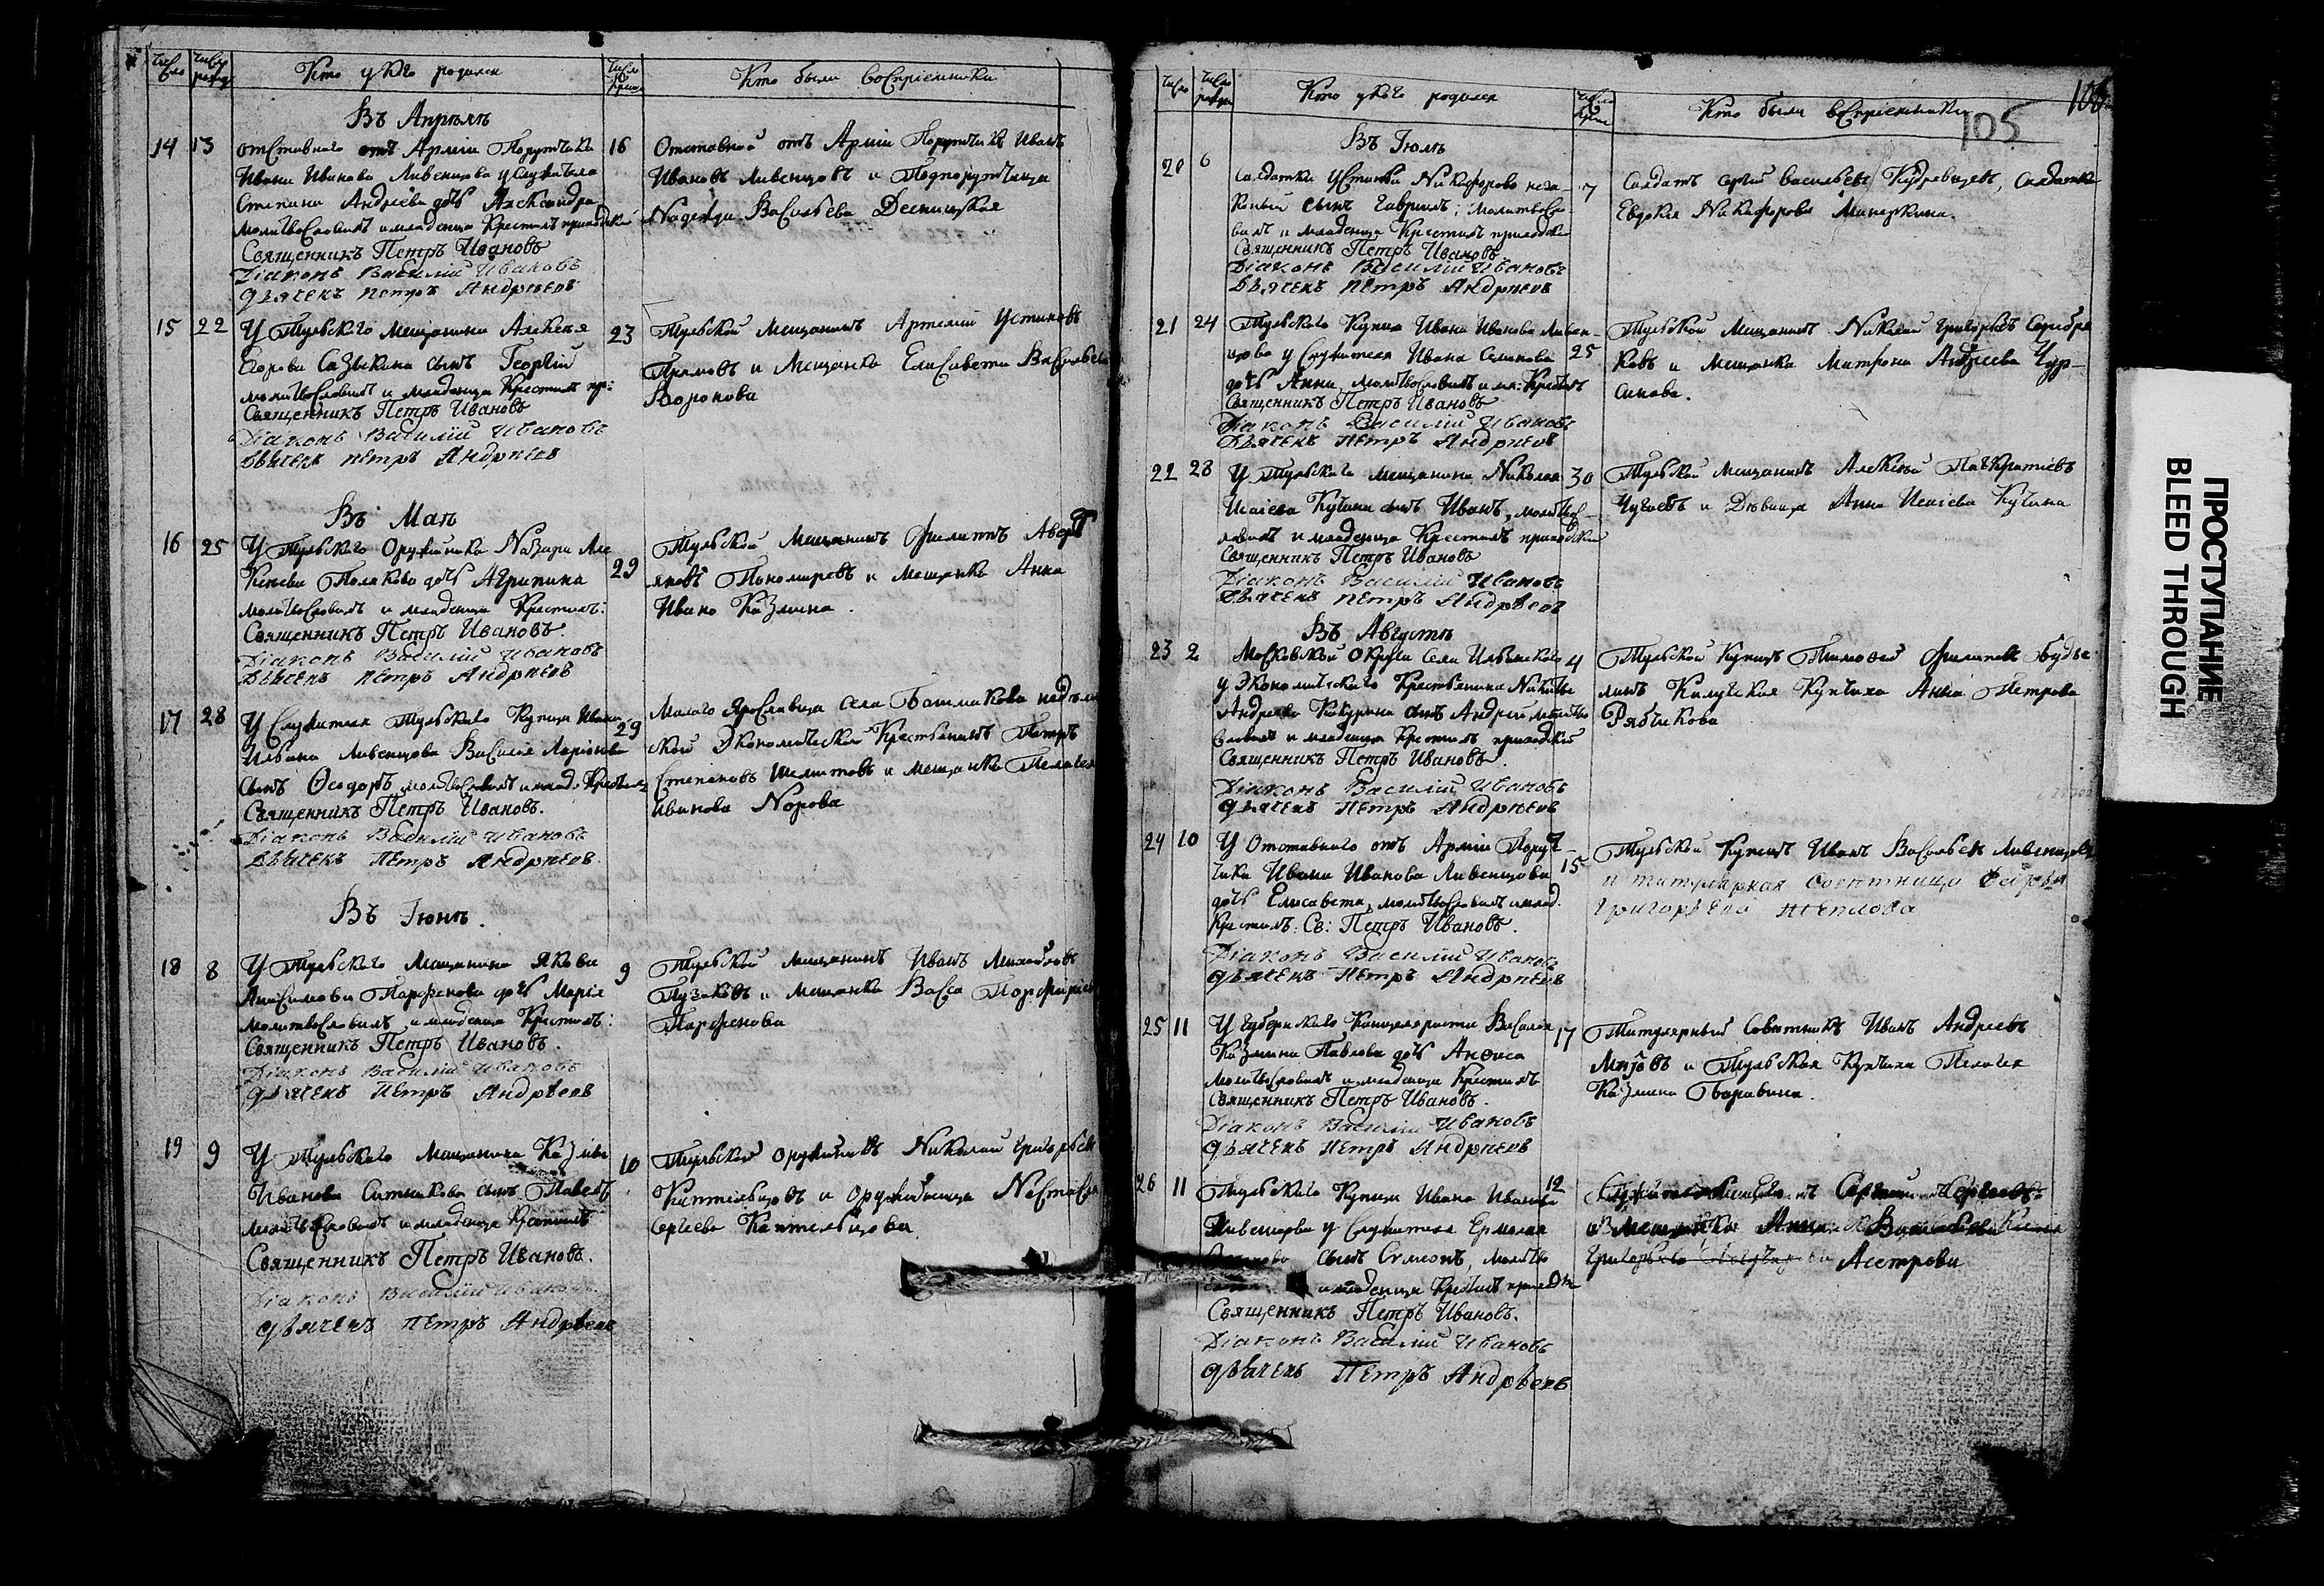 Число
Число рожд
Кто у кого родился
Число крещ
Кто были воспріемники
Въ Апрѣлѣ
14 13 отставнаго отъ Арміи Порутчика
Ивана Иванова Ливенцова у служителя
Степана Андрѣева дочь Александра
молитвословилъ и младенца Крестилъ приходской
Священникъ Петръ Ивановъ
Діаконъ Василій Ивановъ
Дьячекъ Петръ Андрѣевъ
16 Отставной отъ Арміи Порутчикъ Иванъ
Ивановъ Ливенцовъ и Подпорутчица
Надежда Васильева Десницкая
15 22 У Тульскаго мещанина Алексея
Егорова Сазыкина сынъ Георгій
молитвословилъ и младенца Крестилъ пр:
Священникъ Петръ Ивановъ
Діаконъ Василій Ивановъ
Дьячекъ Петръ Андрѣевъ
23 Тульской мещанинъ Артемій Устиновъ
и Мещанка Елисавета Васильева
Воронова
Въ Маѣ
16 25 У Тульскаго Оружейника Назара Але
ксеева Полякова дочь Агрипина
молитвословилъ и младенца Крестилъ:
Священникъ Петръ Ивановъ.
Діаконъ Василій Ивановъ
Дьячекъ Петръ Андрѣевъ
29 Тульской мещанинъ Филиппъ Аверь
яновъ Пономаревъ и мещанка Анна
Ивано Казмина.
17 28 У служителя Тульскаго Купца Ивана
Ивана Ливенцова Василія Ларіонова
сынъ Ѳеодоръ, молитвословилъ и млад. Крестилъ
Священникъ Петръ Ивановъ.
Діаконъ Василій Ивановъ
Дьячекъ Петръ Андрѣевъ.
29 Малаго Ярославца села Башмакова
ской Экономической Крестьянинъ Петръ
Степановъ и мещанка Пелагея
Иванова Норова
Въ Іюнѣ.
18 8 У Тульскаго Мещанина Якова
Анисимова Парфенова дочь Марія
молитвословилъ и младенца Крестилъ:
Священникъ Петръ Ивановъ.
Діаконъ Василій Ивановъ
Дьячекъ Петръ Андрѣевъ
9 Тульской мещанинъ Иванъ Михайловъ
Пузаковъ и мещанка Васса Порфирьева
Парфенова
19 9 У Тульскаго Мещанина Казмы
Иванова Ситникова сынъ Павелъ
молитвословилъ и младенца Крестилъ
Священникъ Петръ Ивановъ.
Діаконъ Василій Ивановъ
Дьячекъ Петръ Андрѣевъ
10 Тульской оружейникъ Николай Григорьевъ
и оружейница Настасья
Сергеева
106
105
Число
Число рожд
Кто у кого родился
Число крещ
Кто были воспріемники
Въ Іюлѣ
20 6 Солдатки Устиньи Никифоровой неза
конный сынъ Гавріилъ, молитвосло
вилъ и младенца Крестилъ приходской
Священникъ Петръ Ивановъ
Діаконъ Василій Ивановъ
Дьячекъ Петръ Андрѣевъ
7 Солдатъ Сергій Васильевъ Кудрявцевъ, солдатка
Евдокія Никифорова
21 24 Тульскаго Купца Ивана Иванова Ливен
цова у Служителя Ивана Семенова
дочь Анна, молитвословилъ и мл: Крестилъ
Священникъ Петръ Ивановъ
Діаконъ Василій Ивановъ
Дьячекъ Петръ Андрѣевъ
25 Тульской мещанинъ Николай Григорьевъ Серебря
ковъ и мещанка Матрона Андреева Чур-
сикова.
22 28 У Тульскаго мещанина Николая
Исаіева Кучина сынъ Иванъ, молитво
словилъ и младенца Крестилъ приходской
Священникъ Петръ Ивановъ
Діаконъ Василій Ивановъ
Дьячекъ Петръ Андрѣевъ
30 Тульской мещанинъ Алексей Панкратьевъ
и Дѣвица Анна Исаіева Кучина
Въ Августѣ
23 2 Московской округи села Ильинскаго
у Экономическаго Крестьянина Никиты
Андреева сынъ Андрей молитво
словилъ и младенца Крестилъ приходской
Священникъ Петръ Ивановъ.
Діаконъ Василій Ивановъ
Дьячекъ Петръ Андрѣевъ
4 Тульской Купецъ Тимоѳей Филиповъ
Калужская Купчиха Анна Петрова
Рябчикова
24 10 У Отставнаго отъ Арміи Порут
чика Ивана Иванова Ливенцова
дочь Елисавета, молитвословилъ и млад.
Крестилъ: Св: Петръ Ивановъ.
Діаконъ Василій Ивановъ
Дьячекъ Петръ Андрѣевъ
15 Тульской Купецъ Иванъ Васильевъ Ливенцовъ
и титулярная советница
Григорьева
25 11 У Губернскаго Канцеляриста Василья
Казмина Павлова дочь Анѳиса
молитвословилъ и младенца Крестилъ
Священникъ Петръ Ивановъ.
Діаконъ Василій Ивановъ
Дьячекъ Петръ Андрѣевъ
17 Титулярный Советникъ Иванъ Андреевъ
и Тульская Купчиха Пелагея
Казмина
26 11 Тульскаго Купца Ивана Иванова
Ливенцова у Служителя Ермолая
сынъ Сѵмеонъ, молитво
и младенца Крестилъ приходск
Священникъ Петръ Ивановъ.
Діаконъ Василій Ивановъ
Дьячекъ Петръ Андрѣевъ
12
Анна
ПРОСТУПАНИЕ
BLEED THROUGH